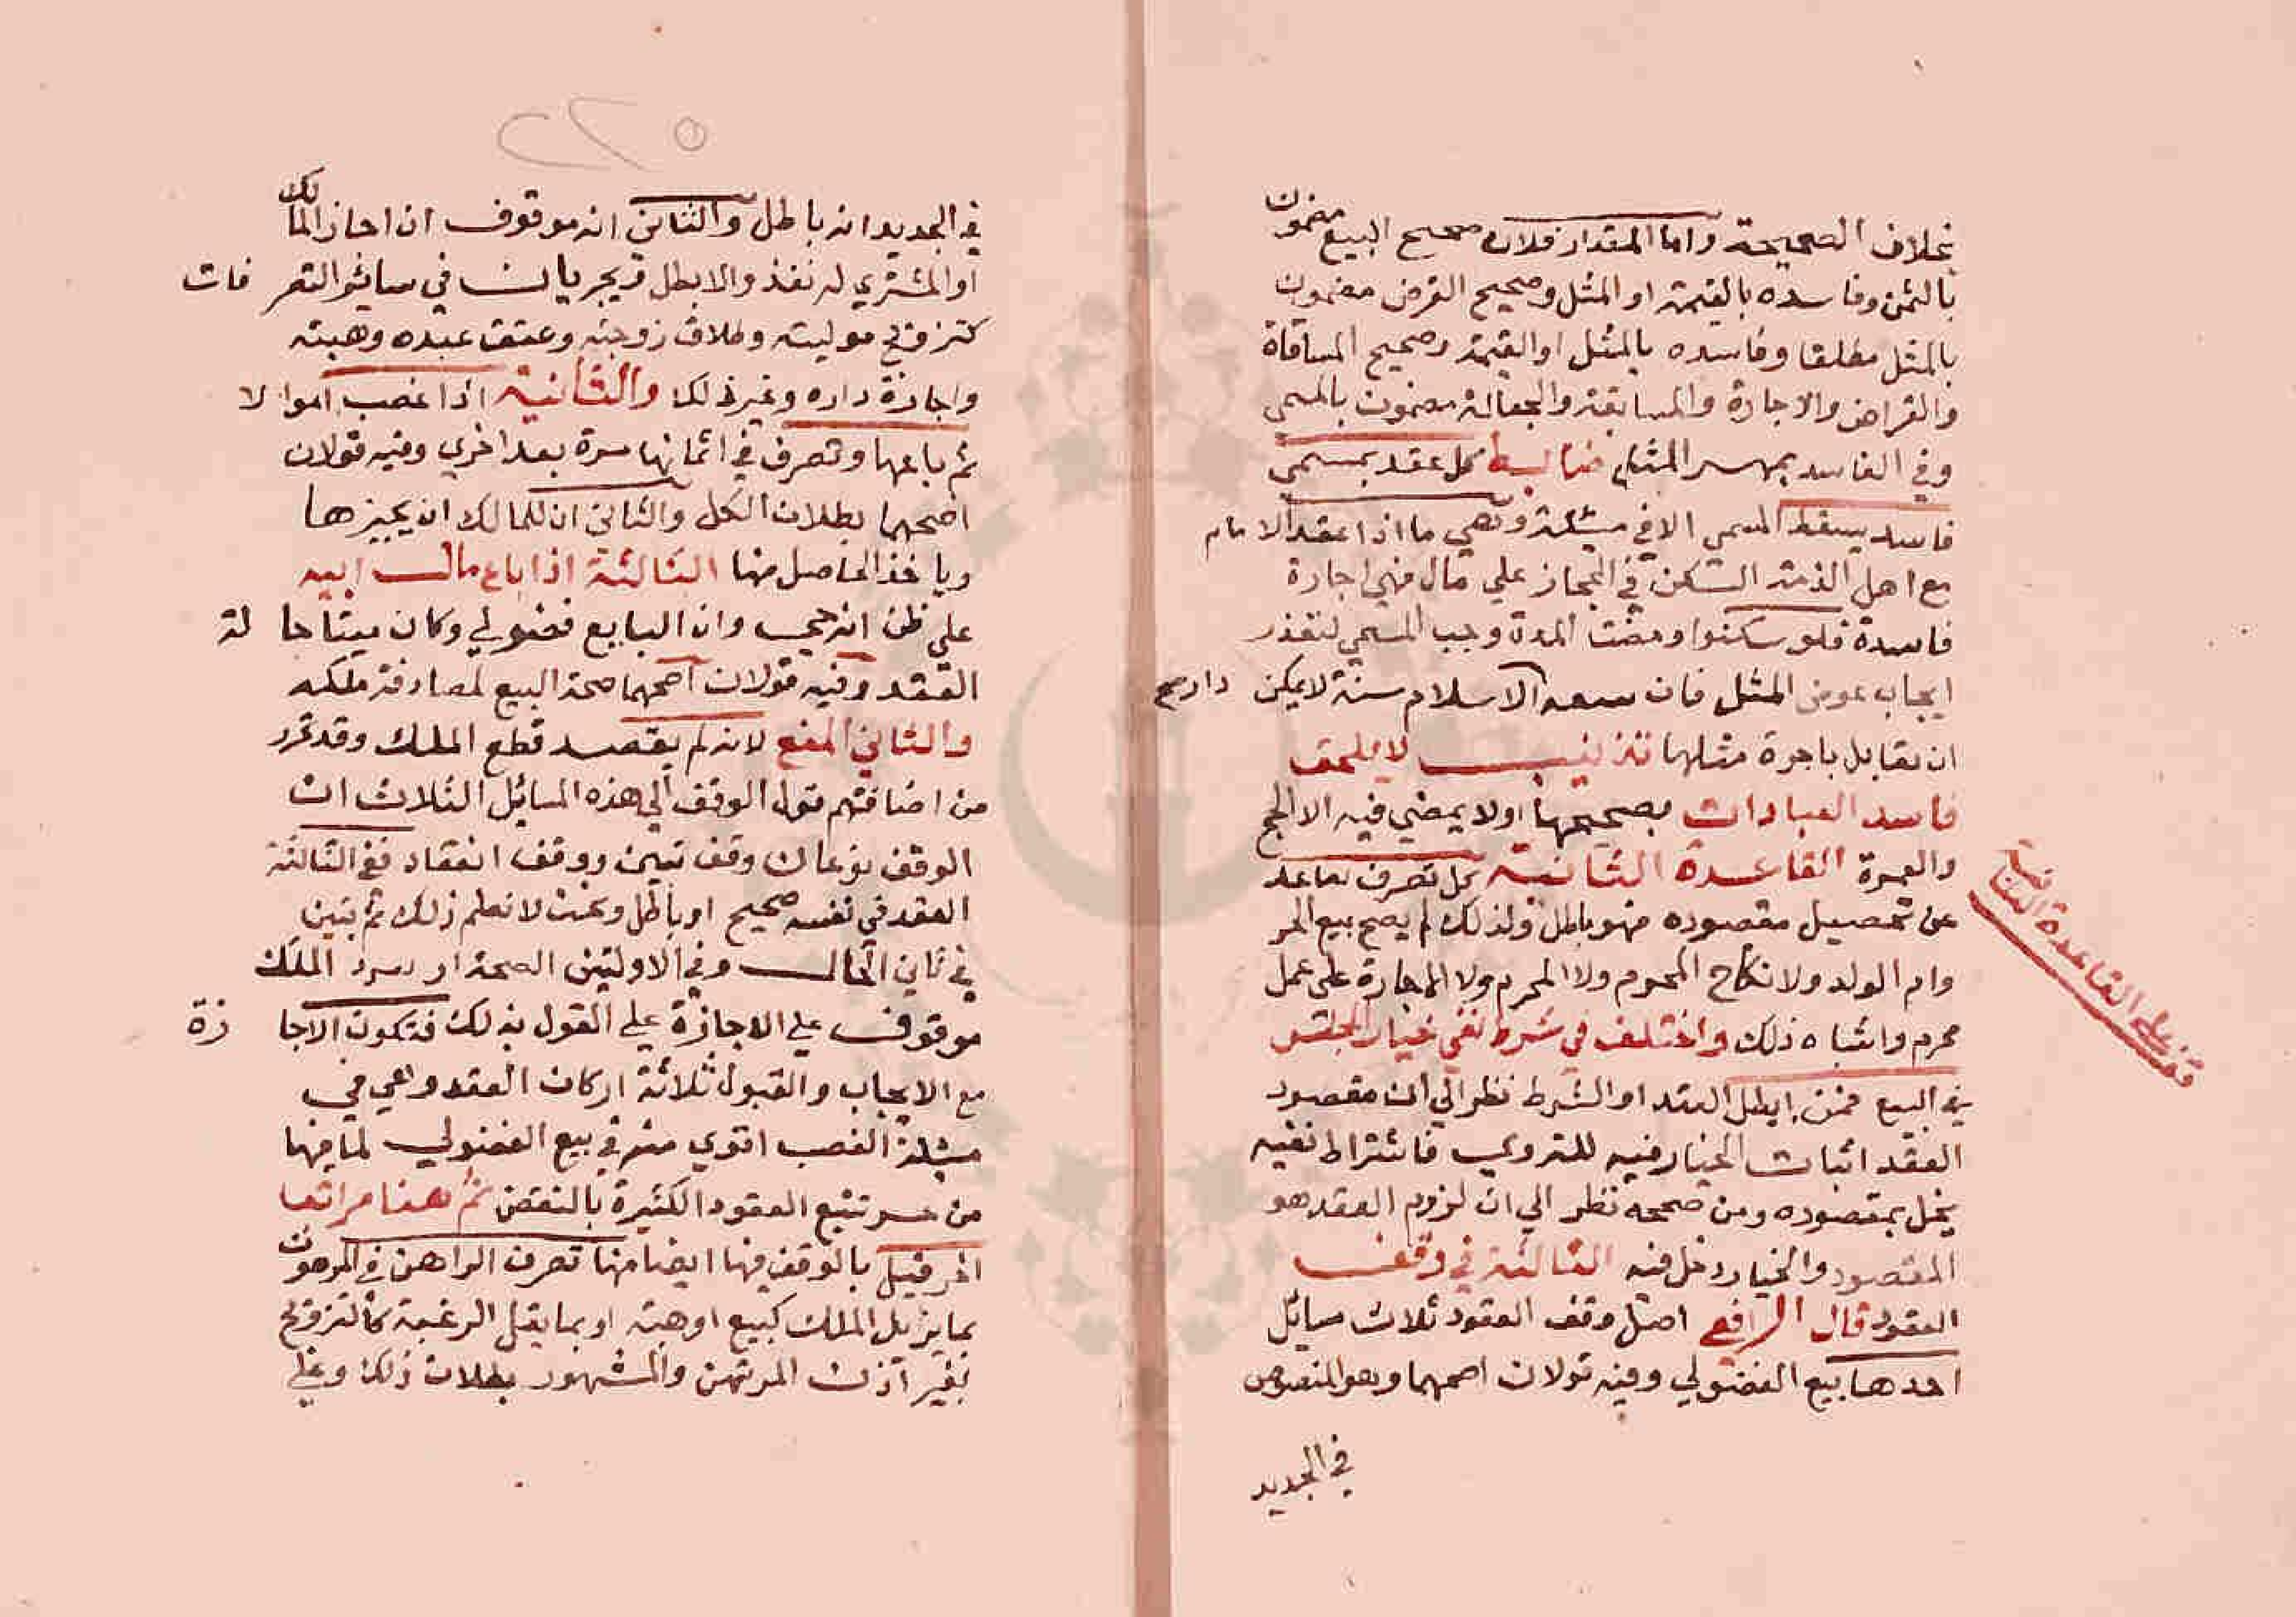 بخلاف الصحيحة واما المقدار فلان صحيح البيع مضمون
بالثمن وفاسده بالقيمة او المثل وصحيح القرض مضمون
بالمثل مطلقا وفاسده بالمثل او القيمة وصحيح المساقاة
والقراض والاجارة والمسابقة والجعالة مضمون بالمسمى
وفي الفاسد بمهر المثل ضابط كل عقد بمسمى
فاسد يسقط المسمى الا في مسئلة وهي ما اذا عقد الامام
مع اهل الذمة السكن في الحجاز علي مال فهي اجارة
فاسدة فلو سكنوا ومضت المدة وجب المسمى لتعذر
ايجاب عوض المثل فان سعه الاسلام سنة لا يمكن دارصح
ان تقابل باجرة مثلها تذنيب لا يلحق
فاسد العبادات بصحيحها اولا يمضي فيه الا الحج
والعمرة القاعدة الثانية كل تصرف تقاعد
عن تحصيل مقصوده فهو باطل ولذلك لم يصح بيع الحر
وام الولد ولا نكاح المحرم ولا المحرم ولا الاجارة على عمل
محرم واشباه ذلك واختلف في شرط نفي خيار المجلس
في البيع فمن ابطل العقد او الشرط نظر الي ان مقصود
العقد اثبات الخيار فيه للتروي فاشتراط نفيه
يخل بمقصوده ومن صححه نظر الي ان لزوم العقد هو
المقصود والخيار دخل فيه الثالثة في وقف
العقود قال الرافعي اصل وقف العقود ثلاث مسائل
احدها بيع الفضولي وفيه قولان اصحهما وهو المنصوص
في الجديد
قف علي القاعدة الثانية
٢٥
في الجديد انه باطل والثاني انه موقوف ان اجاز المالك
او المشتري له نفذ والا بطل ويجريان في سائر التصرفات
كتزويج موليته وطلاق زوجته وعتق عبده وهبته
واجازة داره وغير ذلك والثانية اذا غصب اموالا
ثم باعها وتصرف في اثمانها مرة بعد اخري وفيه قولان
اصحهما بطلان الكل والثاني ان للمالك ان يجيزها
وياخذ الحاصل منها الثالثة اذا باع مال ابيه
علي ظن انه حي وانه البايع فضولي وكان ميتا حالة
العقد وفيه قولان اصحهما صحة البيع لمصادفة ملكه
والثاني المنع لانه لم يقصد قطع الملك وقد تحرر
من اضافتهم قول الوقف الي هذه المسائل الثلاث ان
الوقف نوعان وقف تبين ووقف انعقاد ففي الثالثة
العقد في نفسه صحيح او باطل ونحن لا نعلم ذلك ثم يتبين
في ثاني الحال وفي الاولتين الصحة او الملك
موقوف علي الاجازة علي القول بذلك فتكون الاجازة
مع الايجاب والقبول ثلاثة اركان العقد وهي في
مسئلة الغصب اقوي منه في بيع الفضولي لما فيها
من عسر تتبع العقود الكثيرة بالنقض ثم هنا مراتب
اخر قيل بالوقف فيها ايضا منها تصرف الراهن في المرهون
بما يزيل الملك كبيع او هبة او بما يقلل الرغبة كالتزويج
بغير اذن المرتهن والمشهور بطلان ذلك وعلي